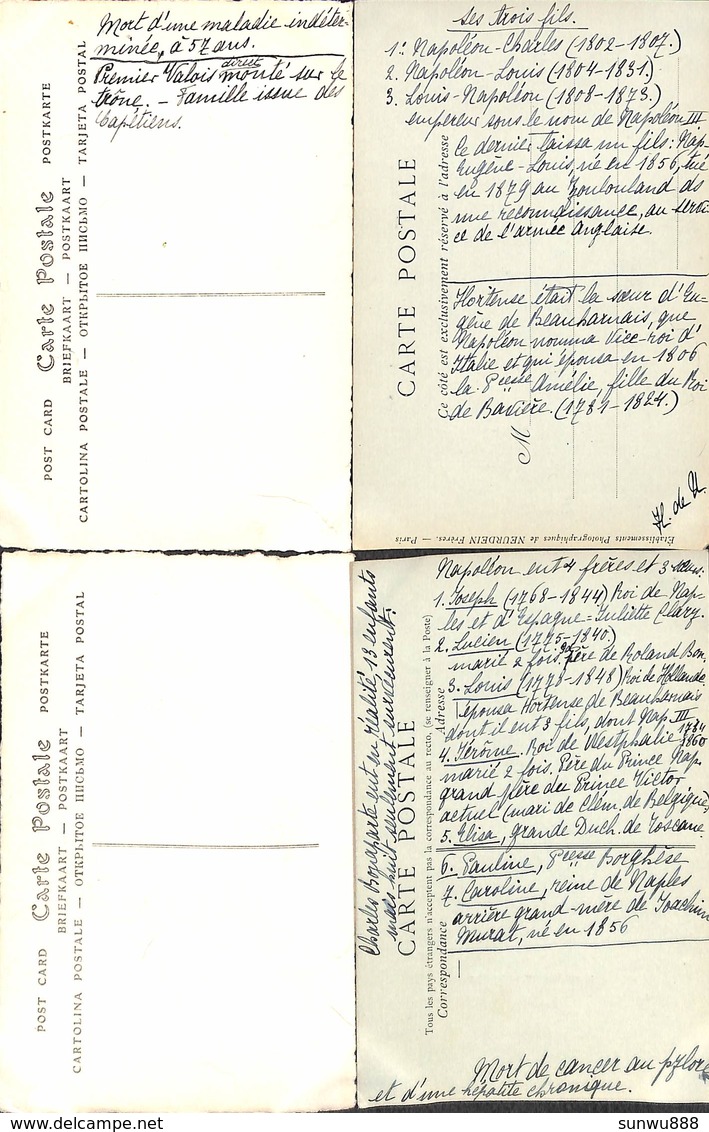 Mort d'une maladie indéter-
minée, à 57 ans.
Premier Valois direct monté sur le
trône. – Famille issue des
Capétiens.
POST CARD
Carte Postale
POSTKARTE
BRIEFKAART — POSTKAART
CARTOLINA POSTALE — ОТКРЫТОЕ ПИСЬМО — TARJETA POSTAL
ses trois fils.
1: Napoléon-Charles (1802-1807.)
2. Napoléon-Louis (1804-1831.)
3. Louis-Napoléon (1808-1873.)
empereur sous le nom de Napoléon III
Ce dernier laissa un fils: Nap.
Eugène-Louis, né en 1856, tué
en 1879 au Zoulouland ds
une reconnaissance, au servi-
ce de l'armée Anglaise.
Hortense était la sœur d'Eu-
gène de Beauharnais, que
Napoléon nomma Vice-roi d'
Italie et qui épousa en 1806
la Pcesse Amélie, fille du Roi
de Bavière. (1781-1824.)
CARTE POSTALE
Ce côté est exclusivement réservé à l'adresse
M
H. de U.
Établissements Photographiques de NEURDEIN Frères. — Paris
POST CARD
Carte Postale
POSTKARTE
BRIEFKAART — POSTKAART
CARTOLINA POSTALE — ОТКРЫТОЕ ПИСЬМО — TARJETA POSTAL
Charles Bonaparte eut en réalité 13 enfants
mais huit seulement survécurent.
CARTE POSTALE
Tous les pays étrangers n'acceptent pas la correspondance au recto, (se renseigner à la Poste)
Correspondance
Adresse
Napoléon eut 4 frères et 3 sœurs:
1. Joseph (1768-1844) Roi de Nap-
les et d'Espagne = Juliette Clary.
2. Lucien (1775-1840.)
marié 2 fois. gd père de Roland Bon.
3. Louis (1778-1848) Roi de Hollande
épousa Hortense de Beauharnais
dont il eut 3 fils, dont Nap. III
4. Jérôme. Roi de Westphalie 1784
1860
marié 2 fois. Père du Prince Nap.
grand père du Prince Victor
actuel (mari de Clem. de Belgique)
5. Elisa, grande Duch. de Toscane
6. Pauline, Pcesse Borghèse
7. Caroline, reine de Naples
arrière grand-mère de Joachim
Murat, né en 1856
Mort de cancer au pylore
et d'une hépatite chronique.
sunwu888